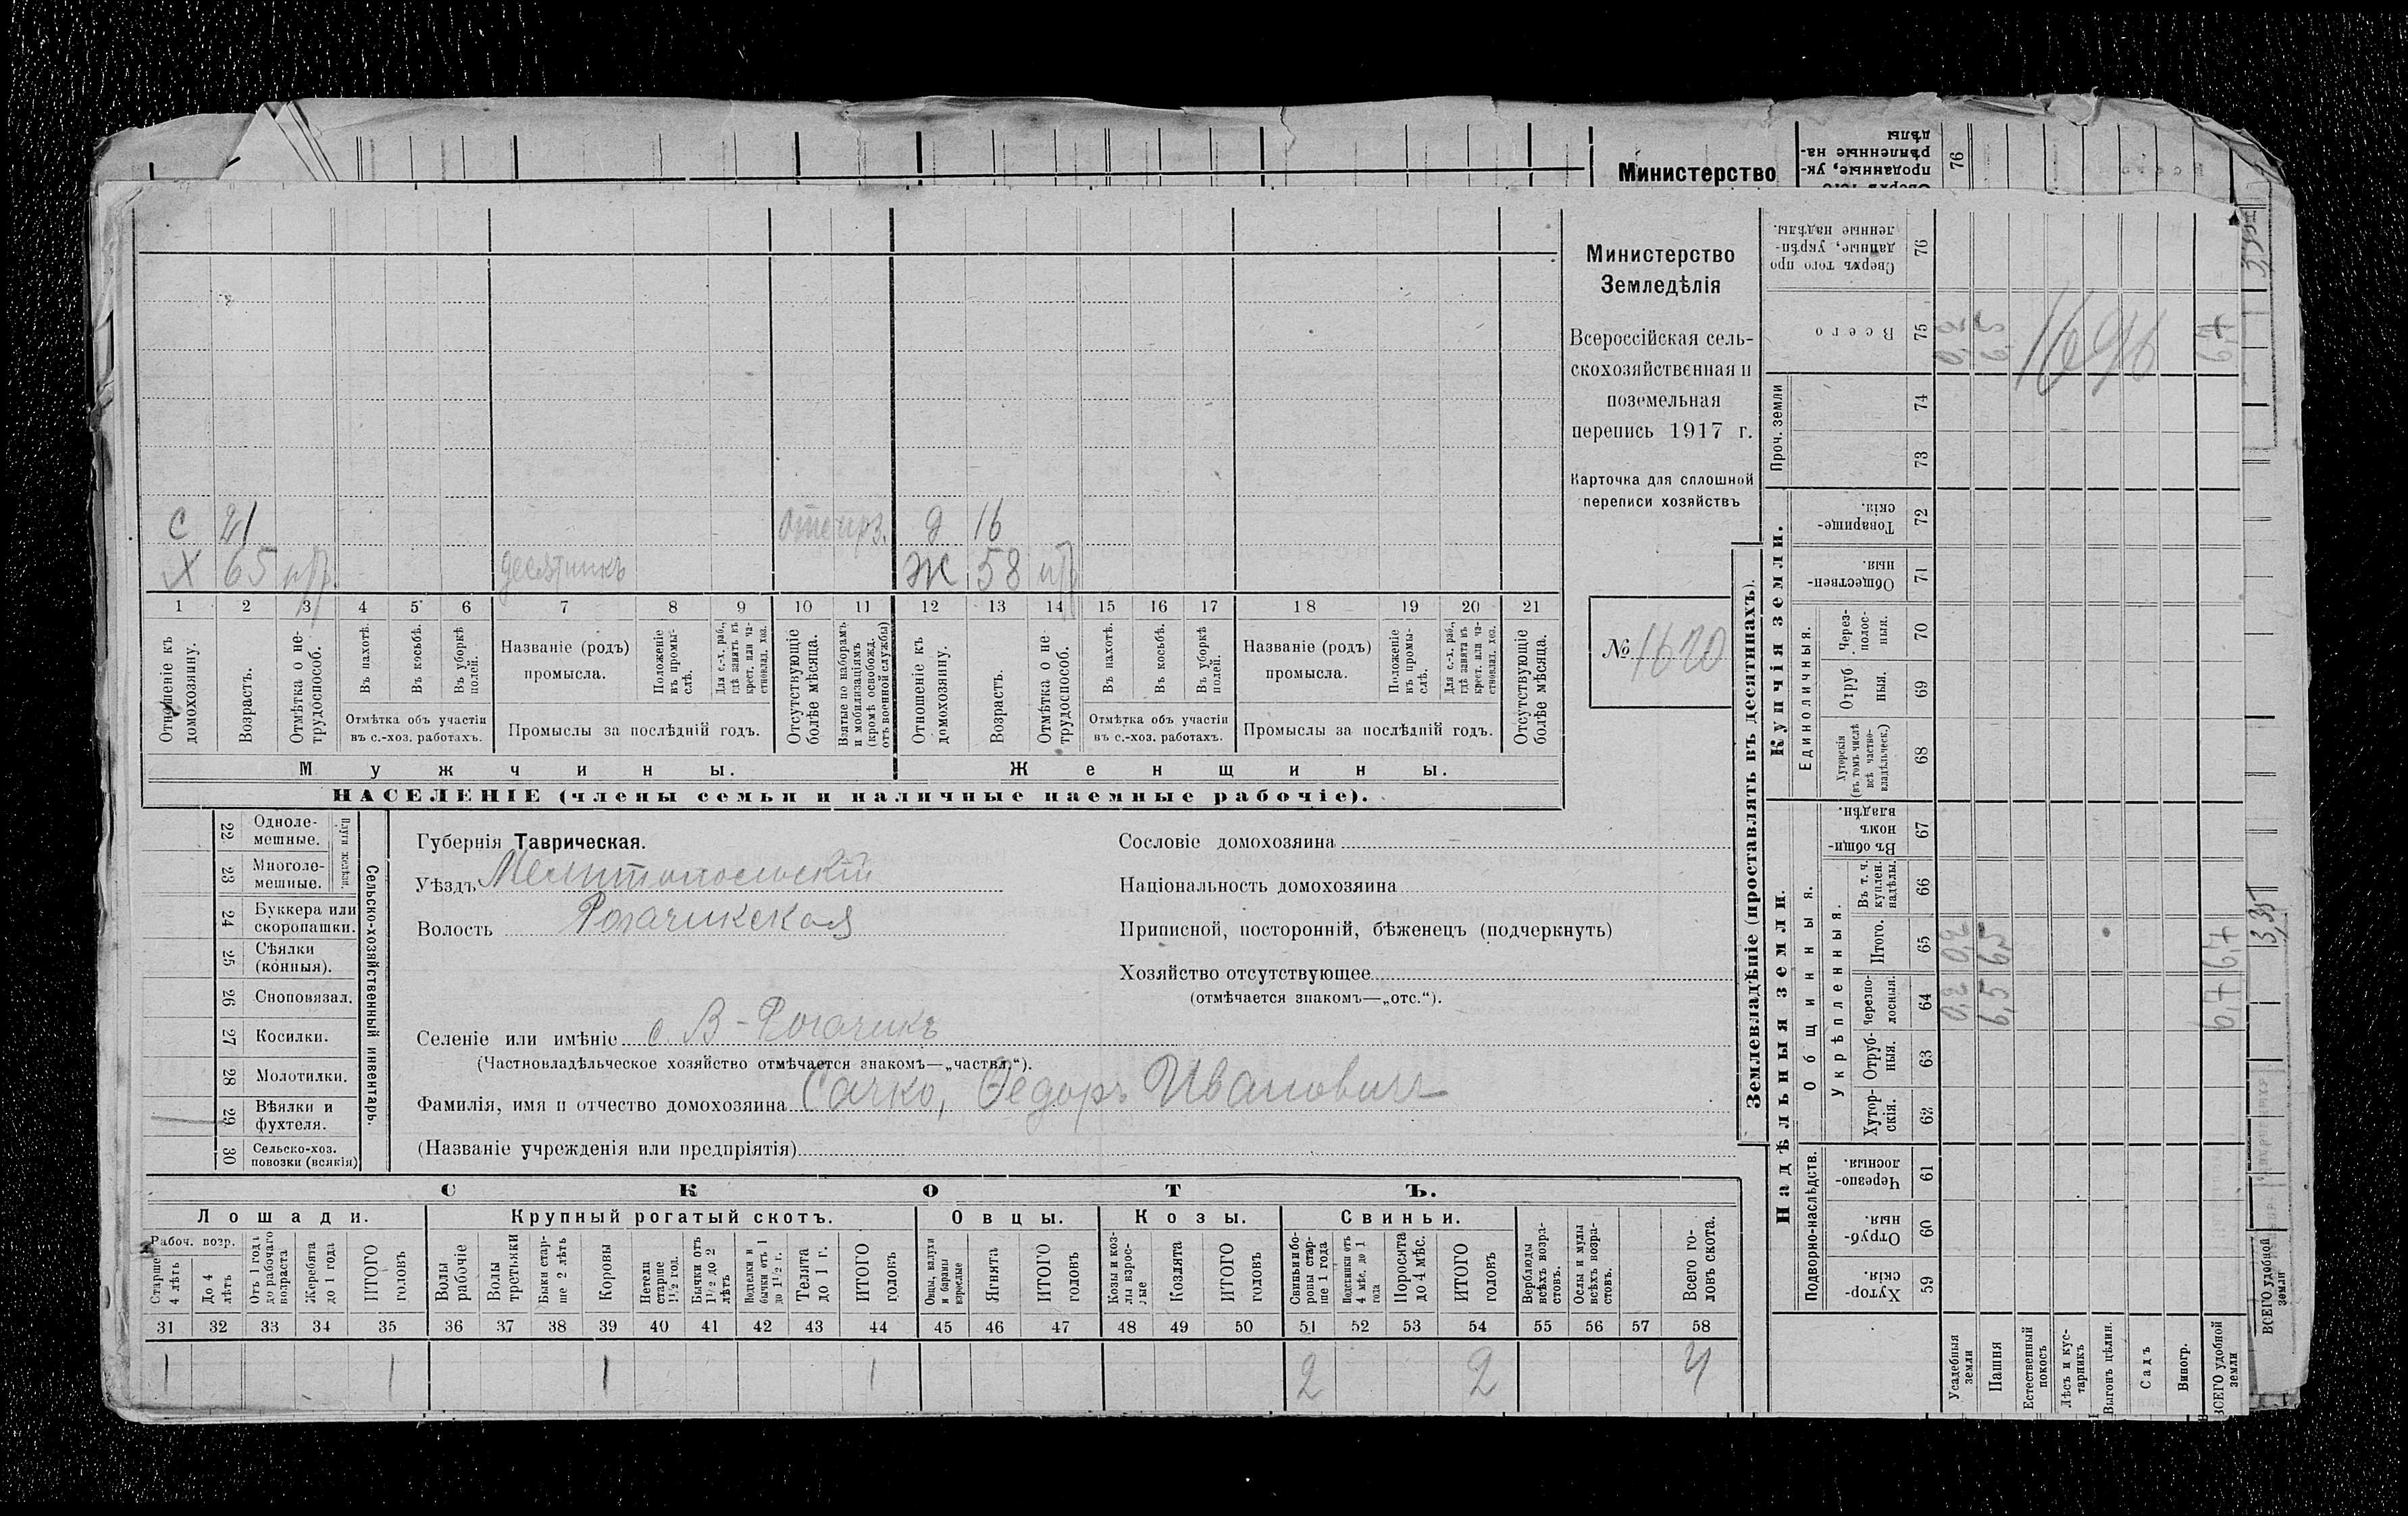 Министерство
Министерство
Земледѣлія
Всероссійская сель-
скохозяйственная и
поземельная
перепись 1917 г.
Карточка для сплошной
переписи хозяйствъ
№ 1620
с 21 д 16
х 65 десятникъ ж 58
1 2 3 4 5 6 7 8 9 10 11 12 13 14 15 16 17 18 19 20 21
Отношеніе къ домохозяину.
Возрастъ.
Отмѣтка о не-трудоспособ.
Въ пахотѣ.
Въ косьбѣ.
Въ уборкѣ полей.
Отмѣтка объ участіи
въ с.-хоз. работахъ.
Названіе (родъ)
промысла.
Положеніе въ промы-слѣ.
Для с.-х. раб., гдѣ занятъ въ крест. или ча-стновлад. хоз.
Промыслы за послѣдній годъ.
Отсутствующіе болѣе мѣсяца.
Взятые по наборамъ и мобилизаціямъ (кромѣ освобожд. отъ военной службы)
Отношеніе къ домохозяину.
Возрастъ.
Отмѣтка о не-трудоспособ.
Въ пахотѣ.
Въ косьбѣ.
Въ уборкѣ полей.
Отмѣтка объ участіи
въ с.-хоз. работахъ.
Названіе (родъ)
промысла.
Положеніе въ промы-слѣ.
Для с.-х. раб., гдѣ занята въ крест. или ча-стновлад. хоз.
Промыслы за послѣдній годъ.
Отсутствующіе болѣе мѣсяца.
Мужчины. Женщины.
НАСЕЛЕНІЕ (члены семьи и наличные наемные рабочіе).
Сельско-хозяйственный инвентарь.
Плуги желѣзн.
22 Одноле-
мешные.
23 Многоле-
мешные.
24 Буккера или
скоропашки.
25 Сѣялки
(конныя).
26 Сноповязал.
27 Косилки.
28 Молотилки.
29 Вѣялки и
фухтеля.
30 Сельско-хоз.
повозки (всякія)
Губернія Таврическая.
Уѣздъ Мелитопольскій
Волость Рогачикская
Селеніе или имѣніе с. В-Рогачикъ
(Частновладѣльческое хозяйство отмѣчается знакомъ—„частвл.“).
Фамилія, имя и отчество домохозяина Сачко, Ѳедоръ Ивановичъ
(Названіе учрежденія или предпріятія)
Сословіе домохозяина
Національность домохозяина
Приписной, посторонній, бѣженецъ (подчеркнуть)
Хозяйство отсутствующее
(отмѣчается знакомъ—„отс.“).
СКОТЪ.
Лошади. Крупный рогатый скотъ. Овцы. Козы. Свиньи.
Рабоч. возр.
Старше 4 лѣтъ
До 4 лѣтъ
Отъ 1 года до рабочаго возраста
Жеребята до 1 года
ИТОГО головъ
Волы рабочіе
Волы третьяки
Быки стар-ше 2 лѣтъ
Коровы
Нетели старше 1½ год.
Бычки отъ 1½ до 2 лѣтъ
Подтелки и бычки отъ 1 до 1½ г.
Телята до 1 г.
ИТОГО головъ
Овцы, валухи и бараны взрослые
Ягнята
ИТОГО головъ
Козы и коз-лы взрос-лые
Козлята
ИТОГО головъ
Свиньи и бо-ровы стар-ше 1 года
Подсвинки отъ 4 мѣс. до 1 года
Поросята до 4 мѣс.
ИТОГО головъ
Верблюды всѣхъ возра-стовъ.
Ослы и мулы всѣхъ возра-стовъ.
Всего го-ловъ скота.
31 32 33 34 35 36 37 38 39 40 41 42 43 44 45 46 47 48 49 50 51 52 53 54 55 56 57 58
1 1 1 1 2 2 4
Землевладѣніе (проставлять въ десятинахъ).
Надѣльныя земли. Купчія земли. Проч. земли
Подворно-наслѣдств.
Общинныя.
Укрѣпленныя.
Единоличныя.
Хутор-скія. 59
Отруб-ныя. 60
Черезпо-лосныя. 61
Хутор-скія. 62
Отруб-ныя. 63
Черезпо-лосныя. 64 0,2 6,5 6,7
Итого. 65 0,2 6,5 6,7
Въ т. ч. куплен. надѣлы. 66
Въ общи-номъ владѣн. 67
Хуторскія (въ томъ числѣ всѣ частно-владѣльческ.) 68
Отруб ныя. 69
Через-полос-ныя. 70
Обществен-ныя. 71
Товарище-скія. 72
73
74
Всего 75 0,2 6,5 6,7
Сверхъ того про данные, укрѣп-ленные надѣлы. 76
1696
Усадебныя земли
Пашня
Естественный покосъ
Лѣсъ и кус-тарникъ
Выгонъ цѣлин.
Садъ
Виногр.
ВСЕГО удобной земли
проданные, ук-рѣпленные на-дѣлы
76
3,35
ВСЕГО удобной земли